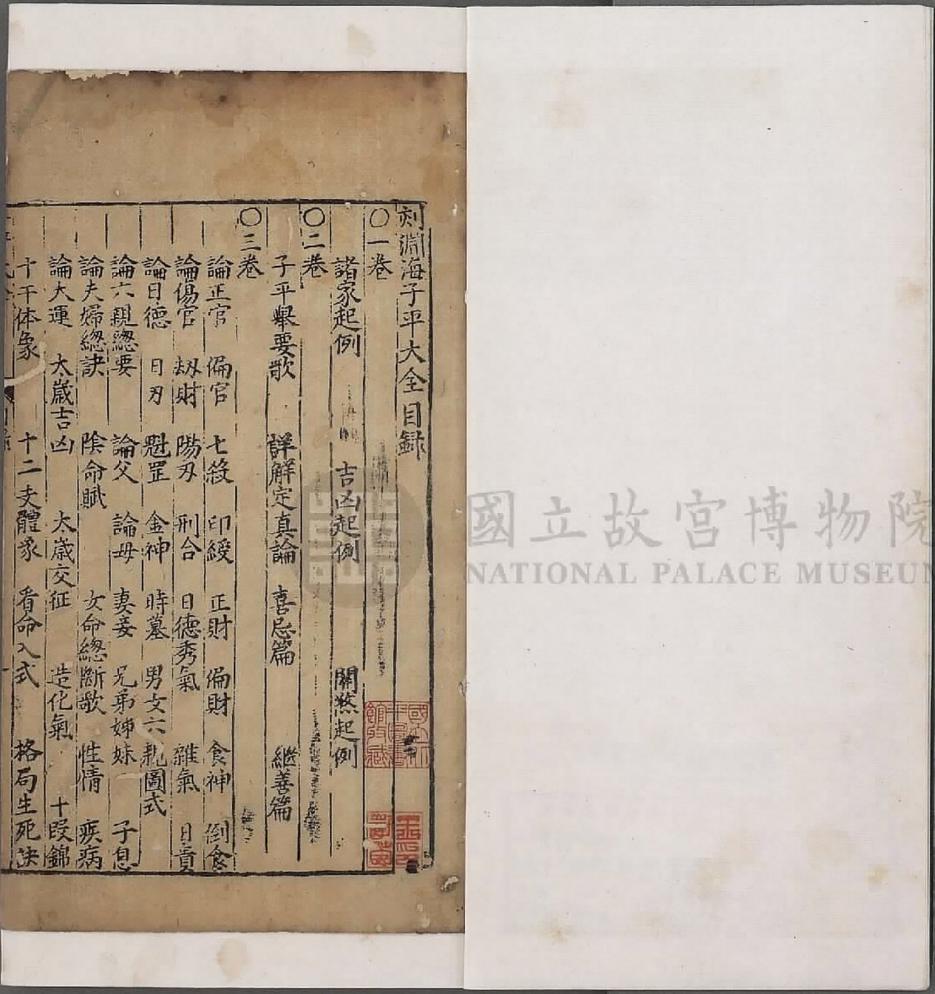 刻淵海子平大全目録
〇一卷
諸家起例 吉凶起例 關煞起例
〇二卷
子平舉要歌 詳解定真論 喜忌篇 継善篇
〇三卷
論正官 偏官 七殺 印綬 正財 偏財 食神 倒食
論傷官 刼財 陽刃 刑合 日德秀氣 雜氣 日貴
論日德 日刃 魁罡 金神 時墓 男女六親圖式
論六親總要 論父 論母 妻妾 兄弟姊妹 子息
論夫婦總訣 陰命賦 女命總斷歌 性情 疾病
論大運 太歳吉凶 太歳交征 造化氣 十段錦
十干体象 十二支體象 看命入式 格局生死訣
國立故宮博物院
NATIONAL PALACE MUSEUM